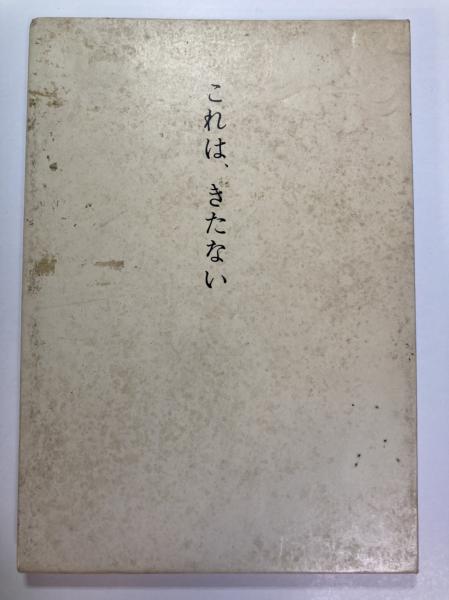 これは、きたない